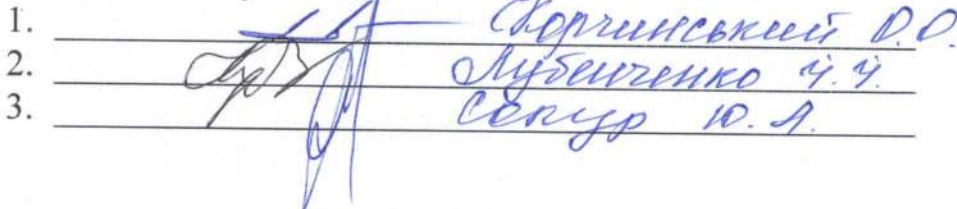 1. Корчинський О.О.
2. Лубенченко
3. Сокур Ю.А.